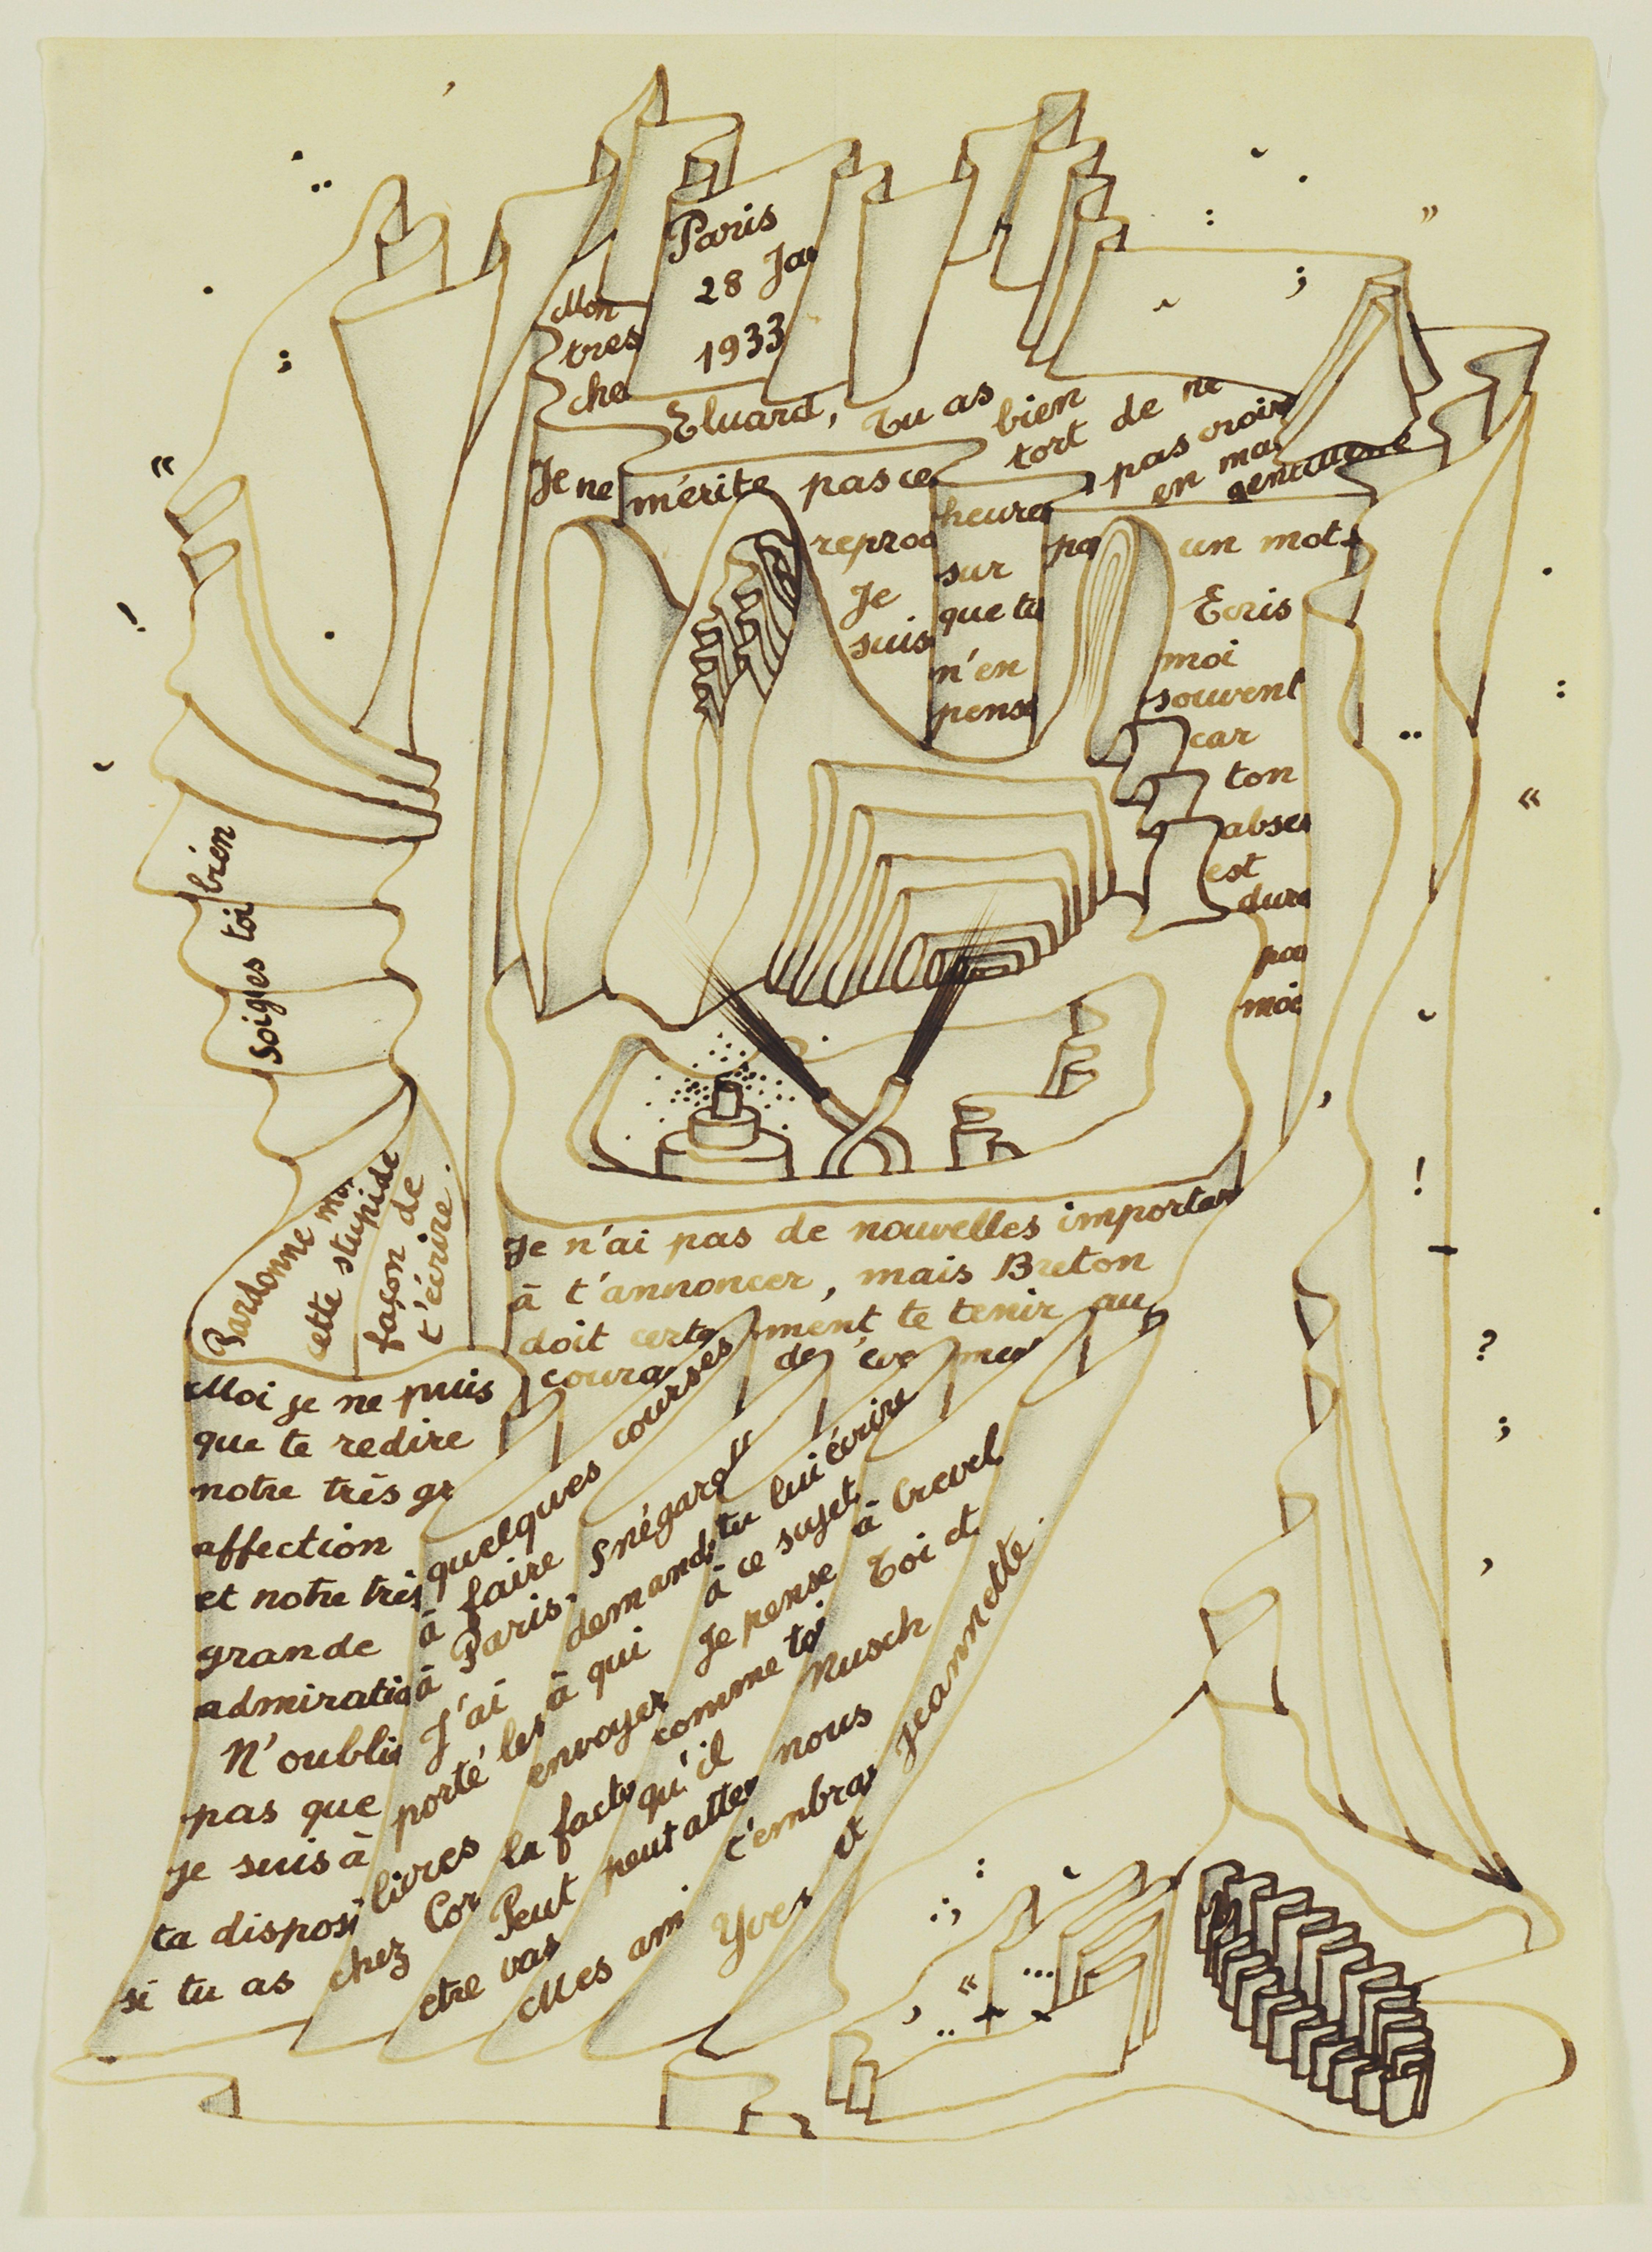 Paris
28 Ja
1933
Mon
tres
che
Eluard, Tu as bien
tort de ne
pas croire
en ma
gentillesse
Je ne mérite pas ce
reproc
Je
suis
heures
sur
que tu
n'en
pense
pa
un mot.
Ecris
moi
souvent
car
ton
absen
est
dure
pou
moi
Je n'ai pas de nouvelles importan
à t'annoncer, mais Breton
doit certe ment te tenir au
coura des éve men
Moi je ne puis
que te redire
notre très gr
affection
et notre très
grande
admiratio
N'oublie
pas que
je suis à
ta disposi
si tu as
quelques courses
à faire
à Paris.
J'ai
porté les
livres
chez Cor
à
demande
à qui
envoyer
la factu
Peut
etre vas
tu lui écrire
à ce sujet
Je pense à Crevel
comme toi
qu'il
peut atten
Mes ami
Toi et
Nusch
nous
t'embras
Yves et Jeannette.
soignes toi bien
Pardonne moi
cette stupide
façon de
t'écrire.